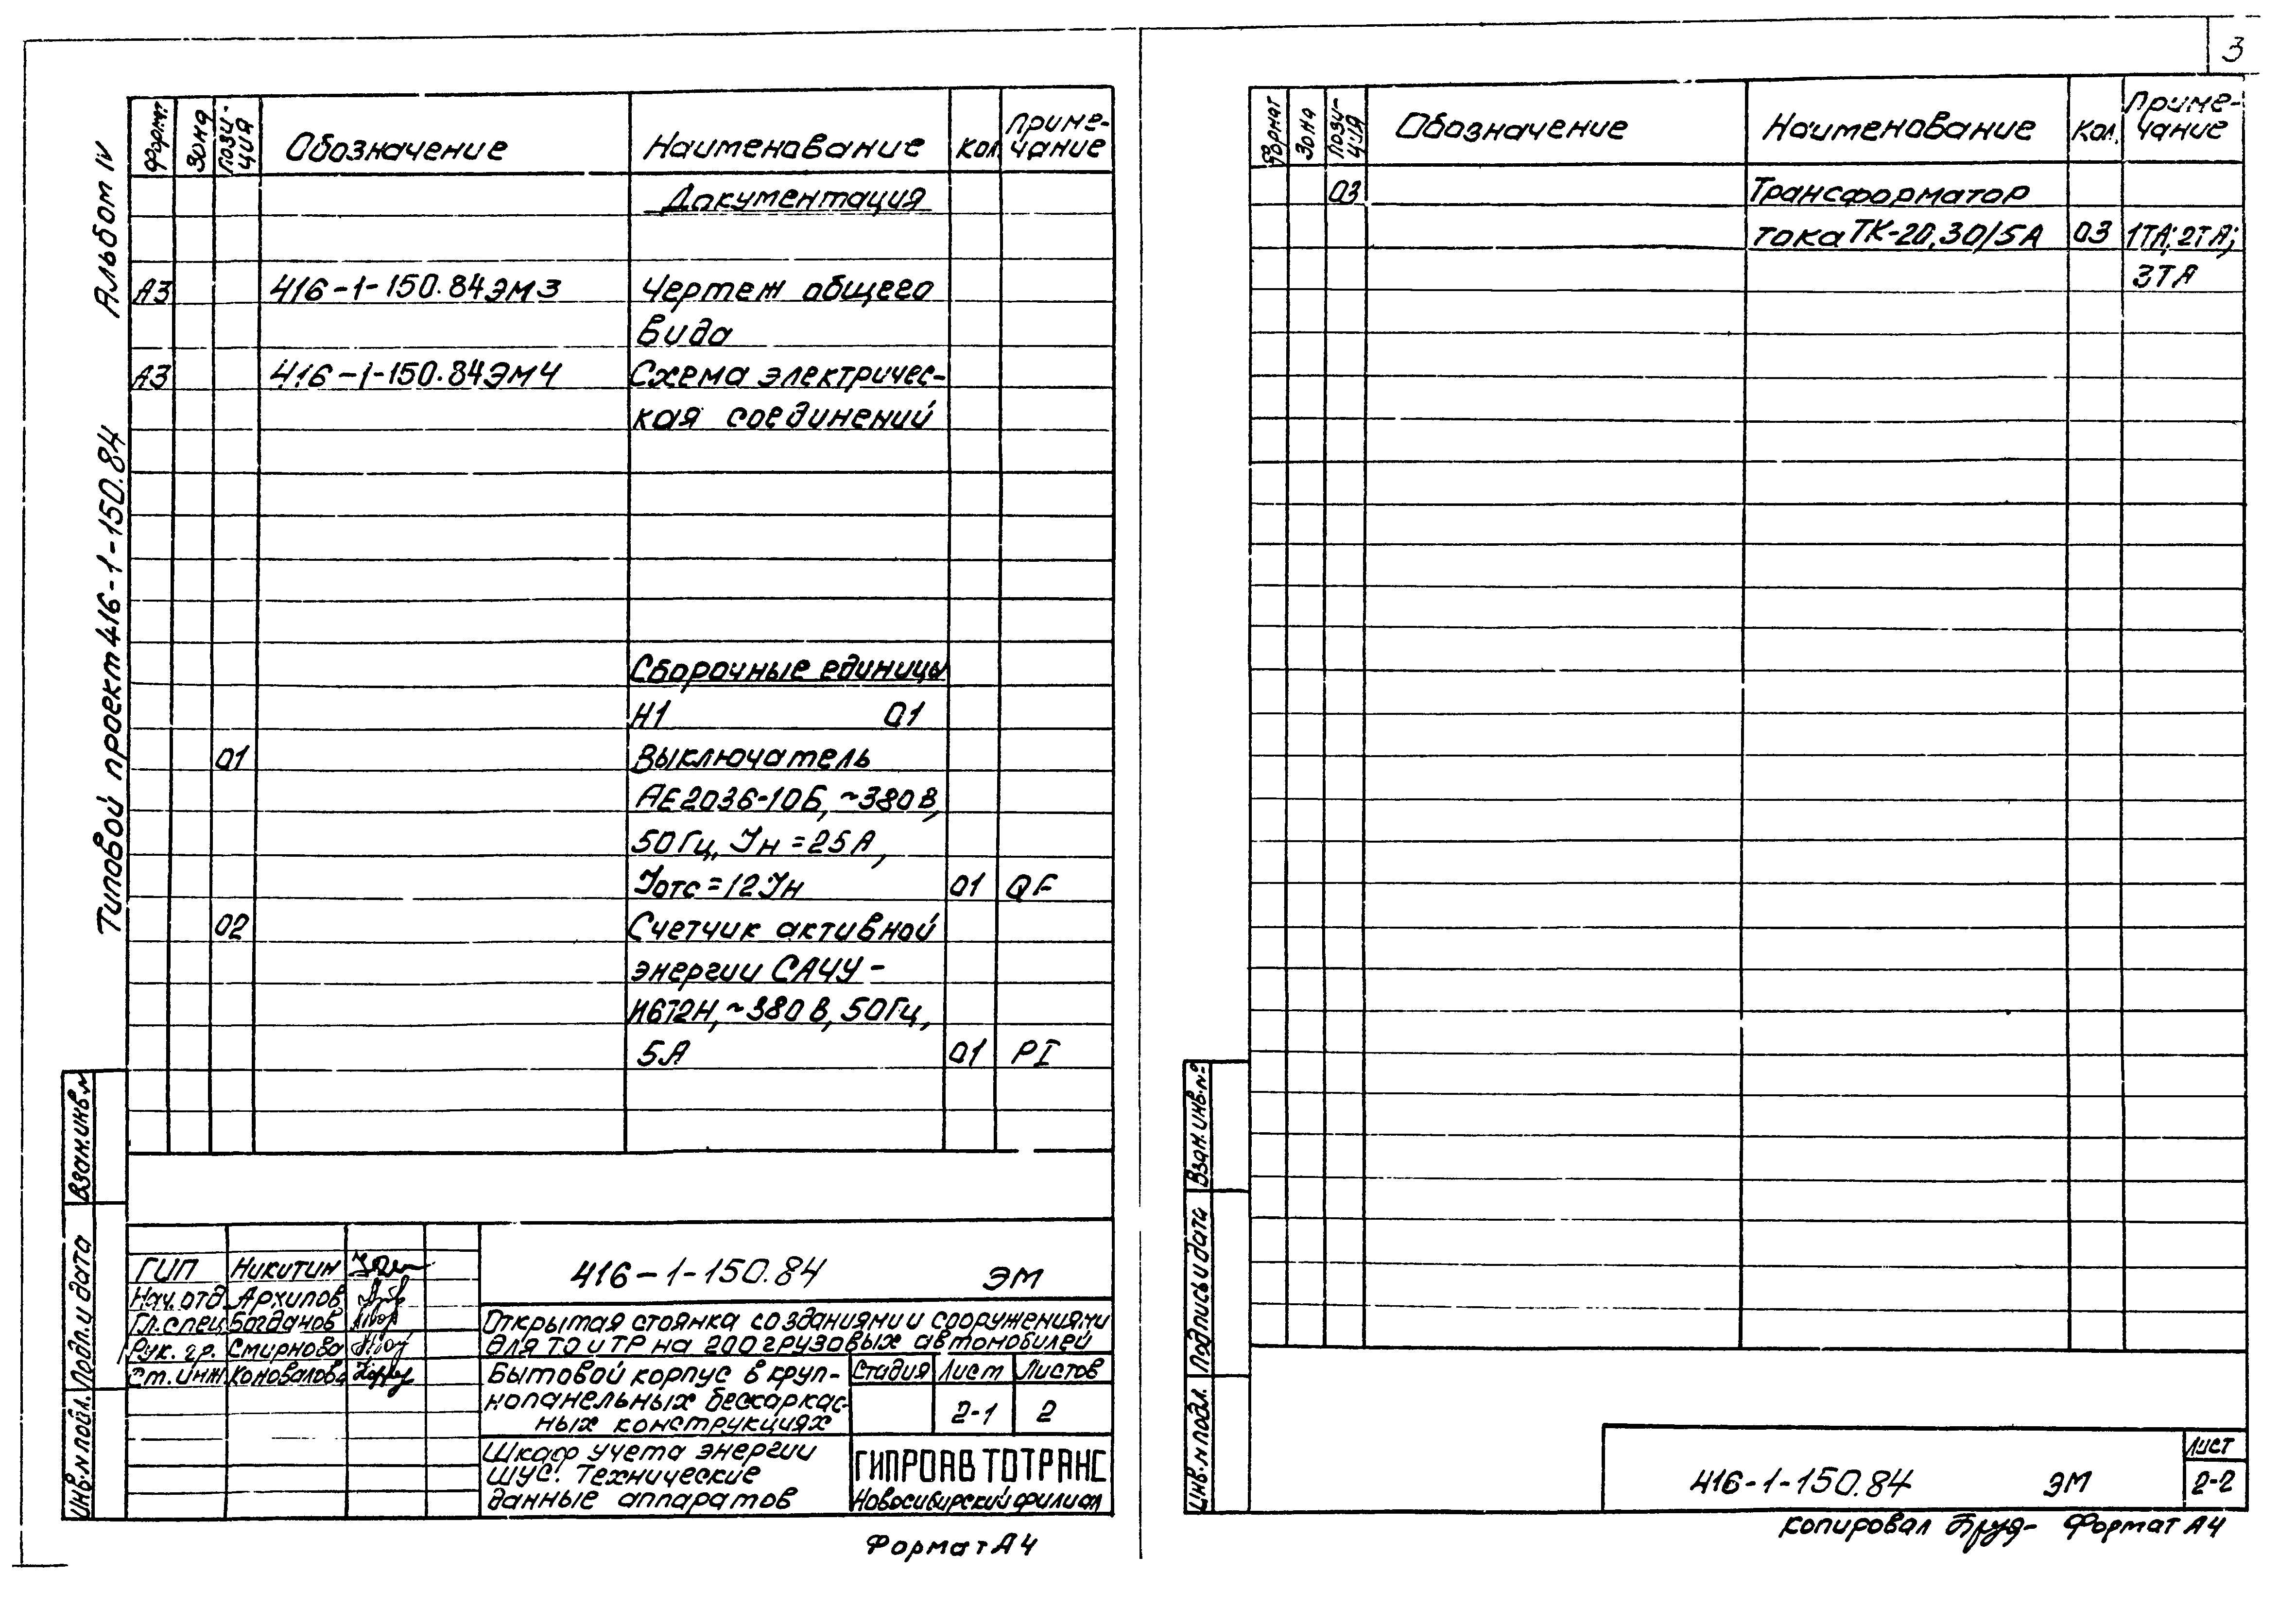 3
Альбом IV
Типовой проект 416-1-150.84
Форм.
Зона
Пози-
ция
Обозначение
Наименование
Кол.
Приме-
чание
Документация
А3 416-1-150.84ЭМ3 Чертеж общего
вида
А3 416-1-150.84ЭМ4 Схема электричес-
кая соединений
Сборочные единицы
Н1 01
01 Выключатель
АЕ2036-10Б, ~380В,
50Гц, Iн=25А,
Iотс=12Iн 01 QF
02 Счетчик активной
энергии САЧУ-
И672Н, ~380В, 50Гц,
5А 01 PI
Взам.инв.№
Подп. и дата
Инв.№ подл.
ГИП Никитин
Нач.отд. Архипов
Гл.спец. Богданов
Рук. гр. Смирнова
Ст.инж. Коновалова
416-1-150.84 ЭМ
Открытая стоянка со зданиями и сооружениями
для ТО и ТР на 200 грузовых автомобилей
Бытовой корпус в круп-
нопанельных бескаркас-
ных конструкциях
Стадия Лист Листов
2-1 2
Шкаф учета энергии
ШУС. Технические
данные аппаратов
ГИПРОАВТОТРАНС
Новосибирский филиал
Формат А4
Формат
Зона
Пози-
ция
Обозначение
Наименование
Кол.
Приме-
чание
03 Трансформатор
тока ТК-20, 30/5А 03 1ТА; 2ТА;
3ТА
Взам.инв.№
Подпись и дата
Инв.№ подл.
416-1-150.84 ЭМ
Лист
2-2
Копировал Формат А4